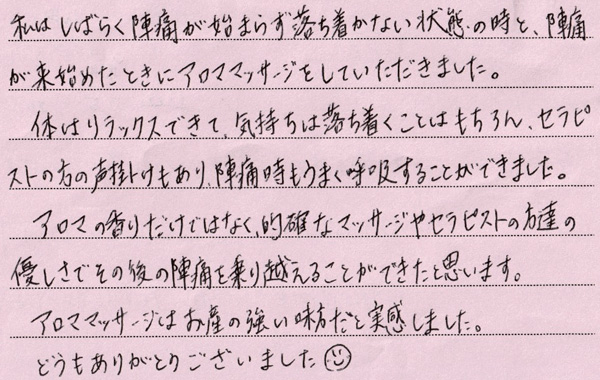 私はしばらく陣痛が始まらず落ち着かない状態の時と、陣痛
が来始めたときにアロママッサージをしていただきました。
体はリラックスできて、気持ちは落ち着くことはもちろん、セラピ
ストの方の声掛けもあり、陣痛時もうまく呼吸することができました。
アロマの香りだけではなく、的確なマッサージやセラピストの方達の
優しさでその後の陣痛を乗り越えることができたと思います。
アロママッサージはお産の強い味方だと実感しました。
どうもありがとうございました☺